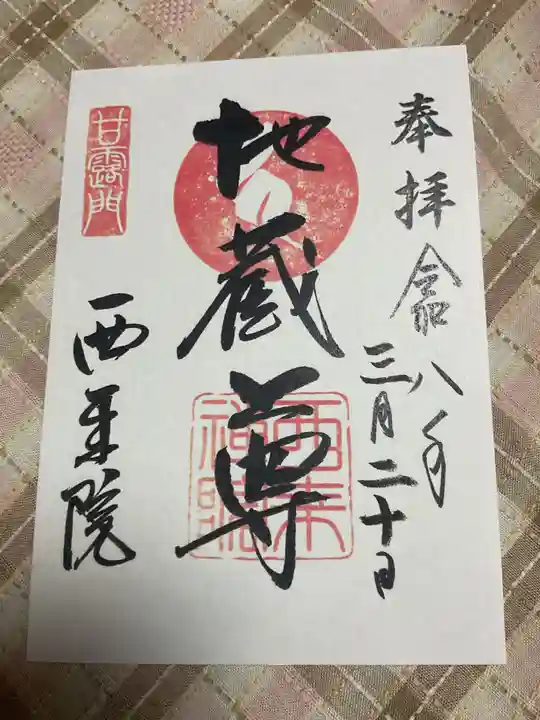 奉拝
令和八年
三月二十日
地蔵尊
西来禅院
甘露門
西来院